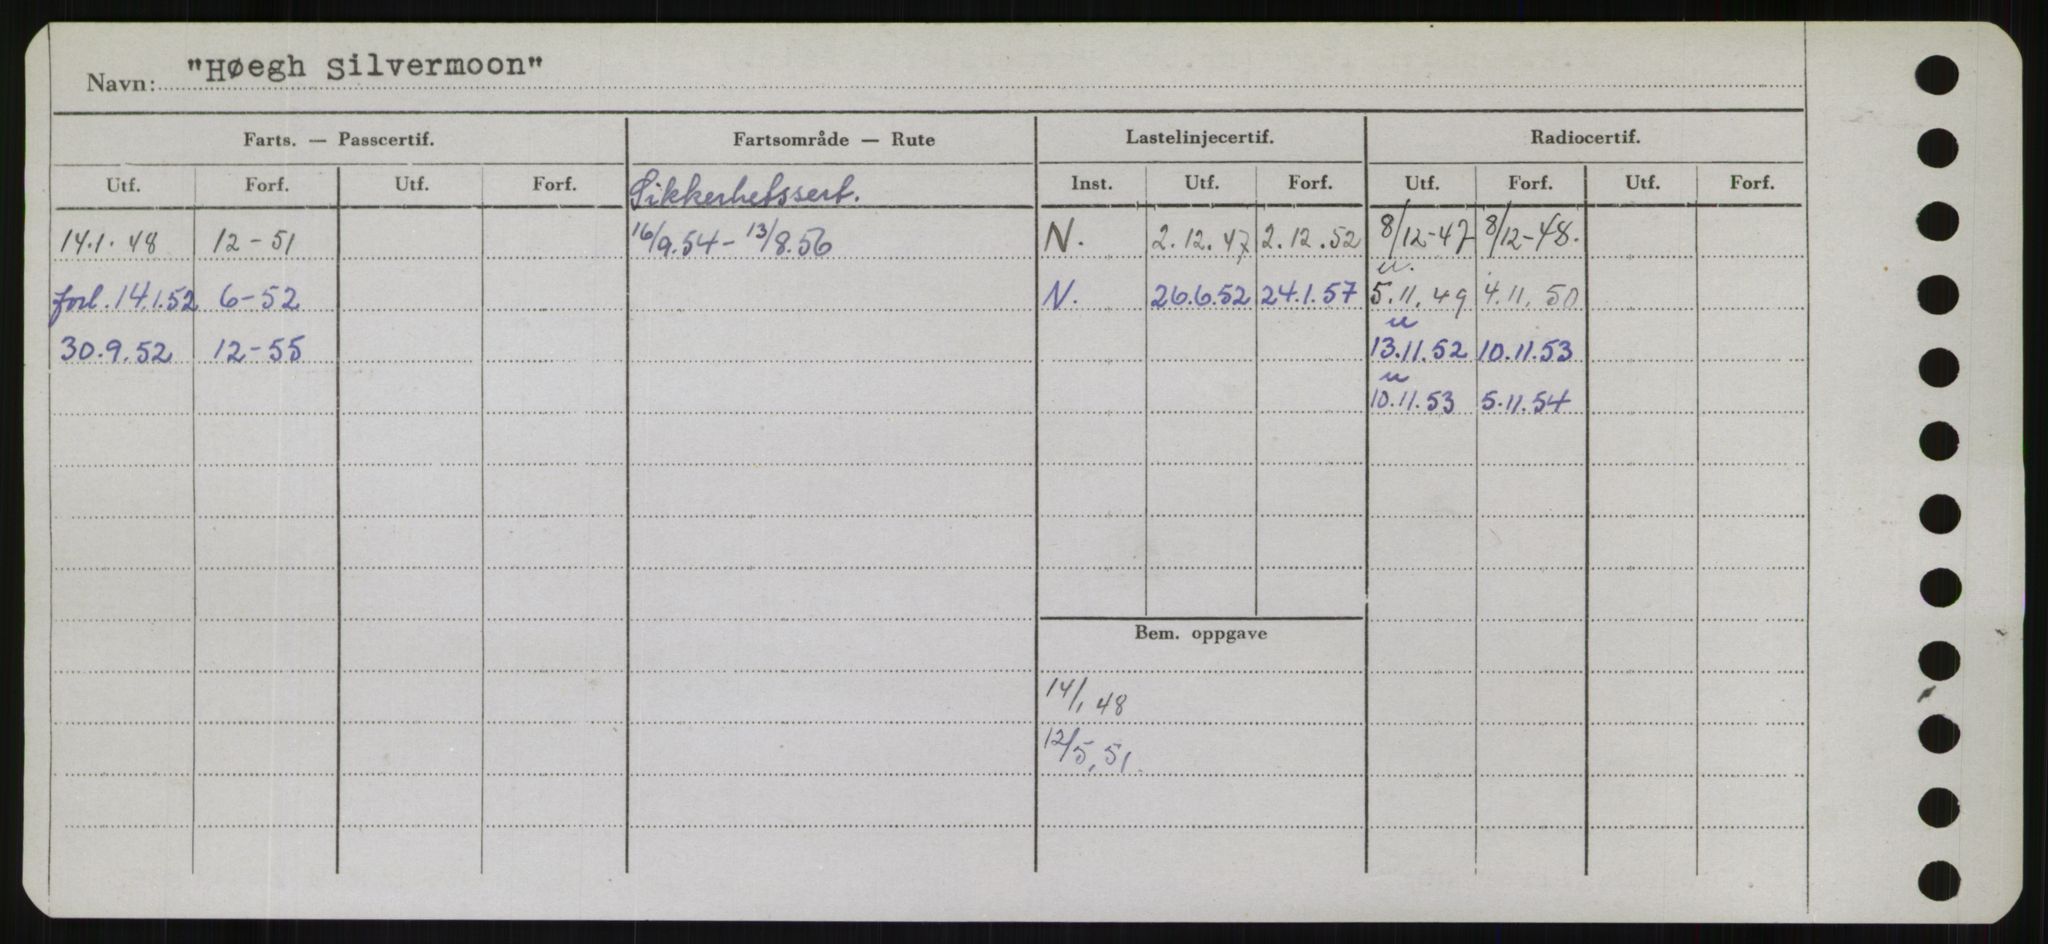 Navn: "Høegh Silvermoon"
Farts. — Passcertif. Fartsområde — Rute Lastelinjecertif. Radiocertif.
Utf. Forf. Utf. Forf. Sikkerhetssert. Inst. Utf. Forf. Utf. Forf. Utf. Forf.
14.1.48 12-51 16/9.54 - 13/8.56 N. 2.12.47 2.12.52 8/12-47 8/12-48.
u.
forl. 14.1.52 6-52 N. 26.6.52 24.1.57 5.11.49 4.11.50
u
30.9.52 12-55 13.11.52 10.11.53
u
10.11.53 5.11.54
Bem. oppgave
14/1 48
12/5.51